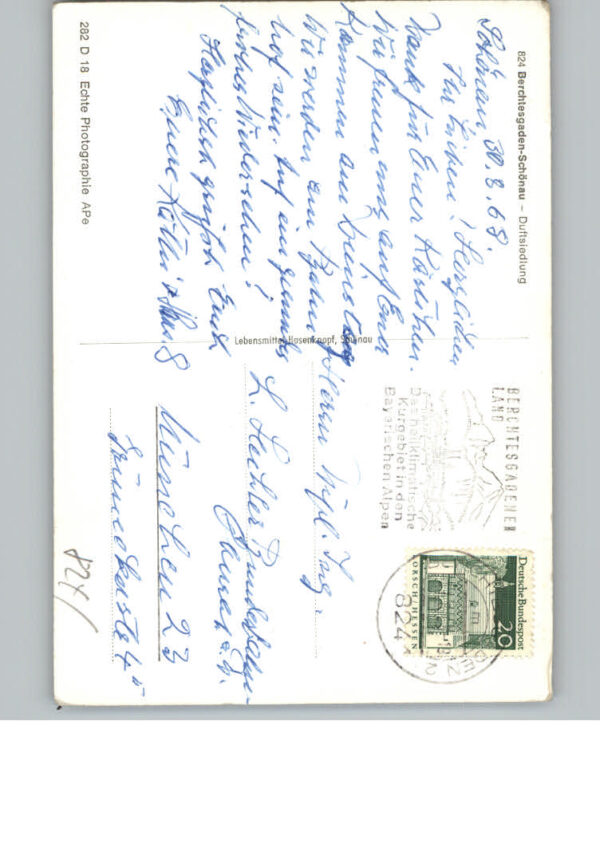 824 Berchtesgaden-Schönau – Duftsiedlung
Schönau 30.8.68.
Ihr Lieben! Herzlichen
Dank für Euer Kärtchen.
Wir freuen uns auf Euer
Kommen am Dienstag
Wir werden am Bahn-
hof sein. Auf ein gesundes
frohes Wiedersehen!
Herzlichst grüßt Euch
Eure
282 D 18 Echte Photographie APe
Lebensmittel Hosenknopf, Schönau
BERCHTESGADENER
LAND
Das heilklimatische
Kurgebiet in den
Bayerischen Alpen
Deutsche Bundespost
20
LORSCH/HESSEN
824
Herrn Dipl. Ing.
München 23
824/